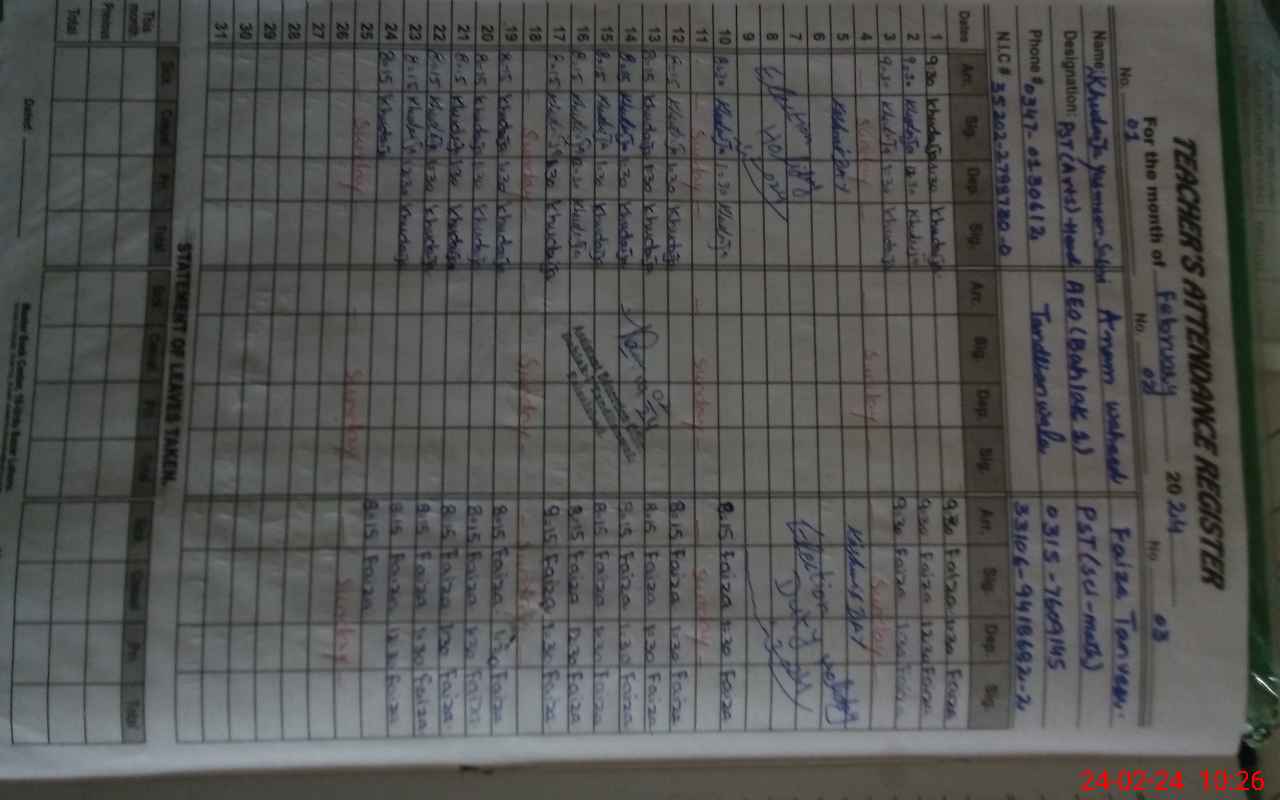 TEACHER'S ATTENDANCE REGISTER
For the month of February 2024
No. 01 No. 02 No. 03
Name: Khudaija Anam waheed Faiza Tanveer
Designation: PST (Arts) - Head AEO (Bahlak 2) PST (sci-math)
Phone # 0347-0130612 Tandlianwala 0315-7609145
N.I.C # 35202-2799780-0 33106-9418692-2
Dates Arr. Sig. Dep. Sig. Arr. Sig. Dep. Sig. Arr. Sig. Dep. Sig.
1 9.30 Khudaija 1.30 Khudaija 9.30 Faiza 1.30 Faiza
2 9.30 Khudaija 12.30 Khudaija 9.30 Faiza 12.30 Faiza
3 9.30 Khudaija 1.30 Khudaija 9.30 Faiza 1.30 Faiza
4 Sunday Sunday Sunday
5 Kashmir DAY Kashmir DAY
6
7 Election Duty
8
9
10 8.30 Khudaija 1.30 Khudaija 8.15 Faiza 1.30 Faiza
11 Sunday Sunday Sunday
12 8.15 Khudaija 1.30 Khudaija 8.15 Faiza 1.30 Faiza
13 8.15 Khudaija 1.30 Khudaija 8.15 Faiza 1.30 Faiza
14 8.15 Khudaija 1.30 Khudaija 8.15 Faiza 1.30 Faiza
15 8.15 Khudaija 1.30 Khudaija 8.15 Faiza 1.30 Faiza
16 8.15 Khudaija 12.30 Khudaija 8.15 Faiza 12.30 Faiza
17 8.15 Khudaija 1.30 Khudaija 8.15 Faiza 1.30 Faiza
18 Sunday Sunday Sunday
19 8.15 Khudaija 1.30 Khudaija 8.15 Faiza 1.30 Faiza
20 8.15 Khudaija 1.30 Khudaija 8.15 Faiza 1.30 Faiza
21 8.15 Khudaija 1.30 Khudaija 8.15 Faiza 1.30 Faiza
22 8.15 Khudaija 1.30 Khudaija 8.15 Faiza 1.30 Faiza
23 8.15 Khudaija 12.30 Khudaija 8.15 Faiza 12.30 Faiza
24 8.15 Khudaija 8.15 Faiza
25 Sunday Sunday Sunday
26
27
28
29
30
31
STATEMENT OF LEAVES TAKEN
Sick Casual Pri. Total Sick Casual Pri. Total Sick Casual Pri. Total
This month
Previous
Total
Dated
24-02-24 10:26